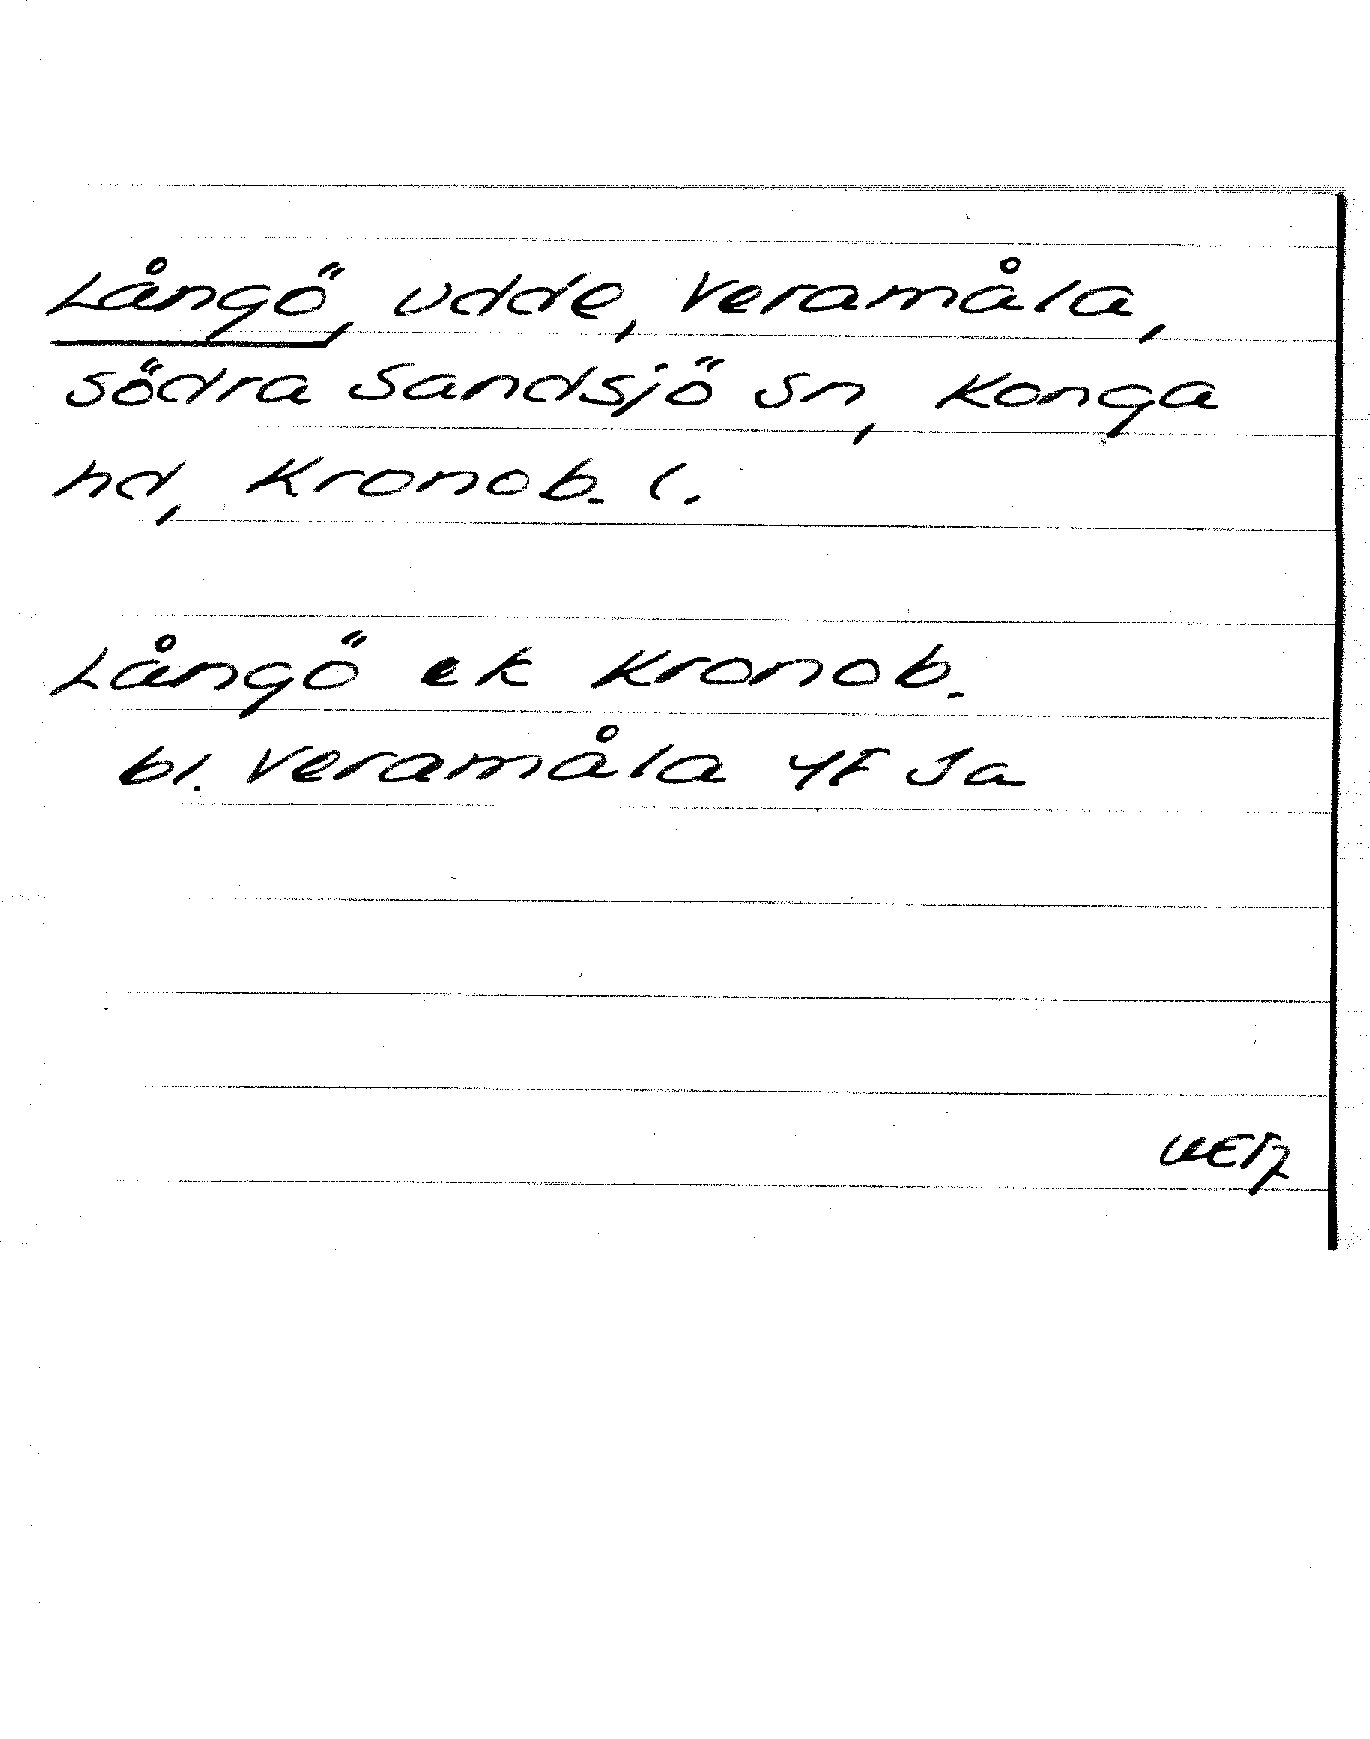 Långö, udde, Veramåla,
södra Sandsjö sn, Konga
hd, Kronob. l.
Långö ek Kronob.
bl. Veramåla 4F Ja